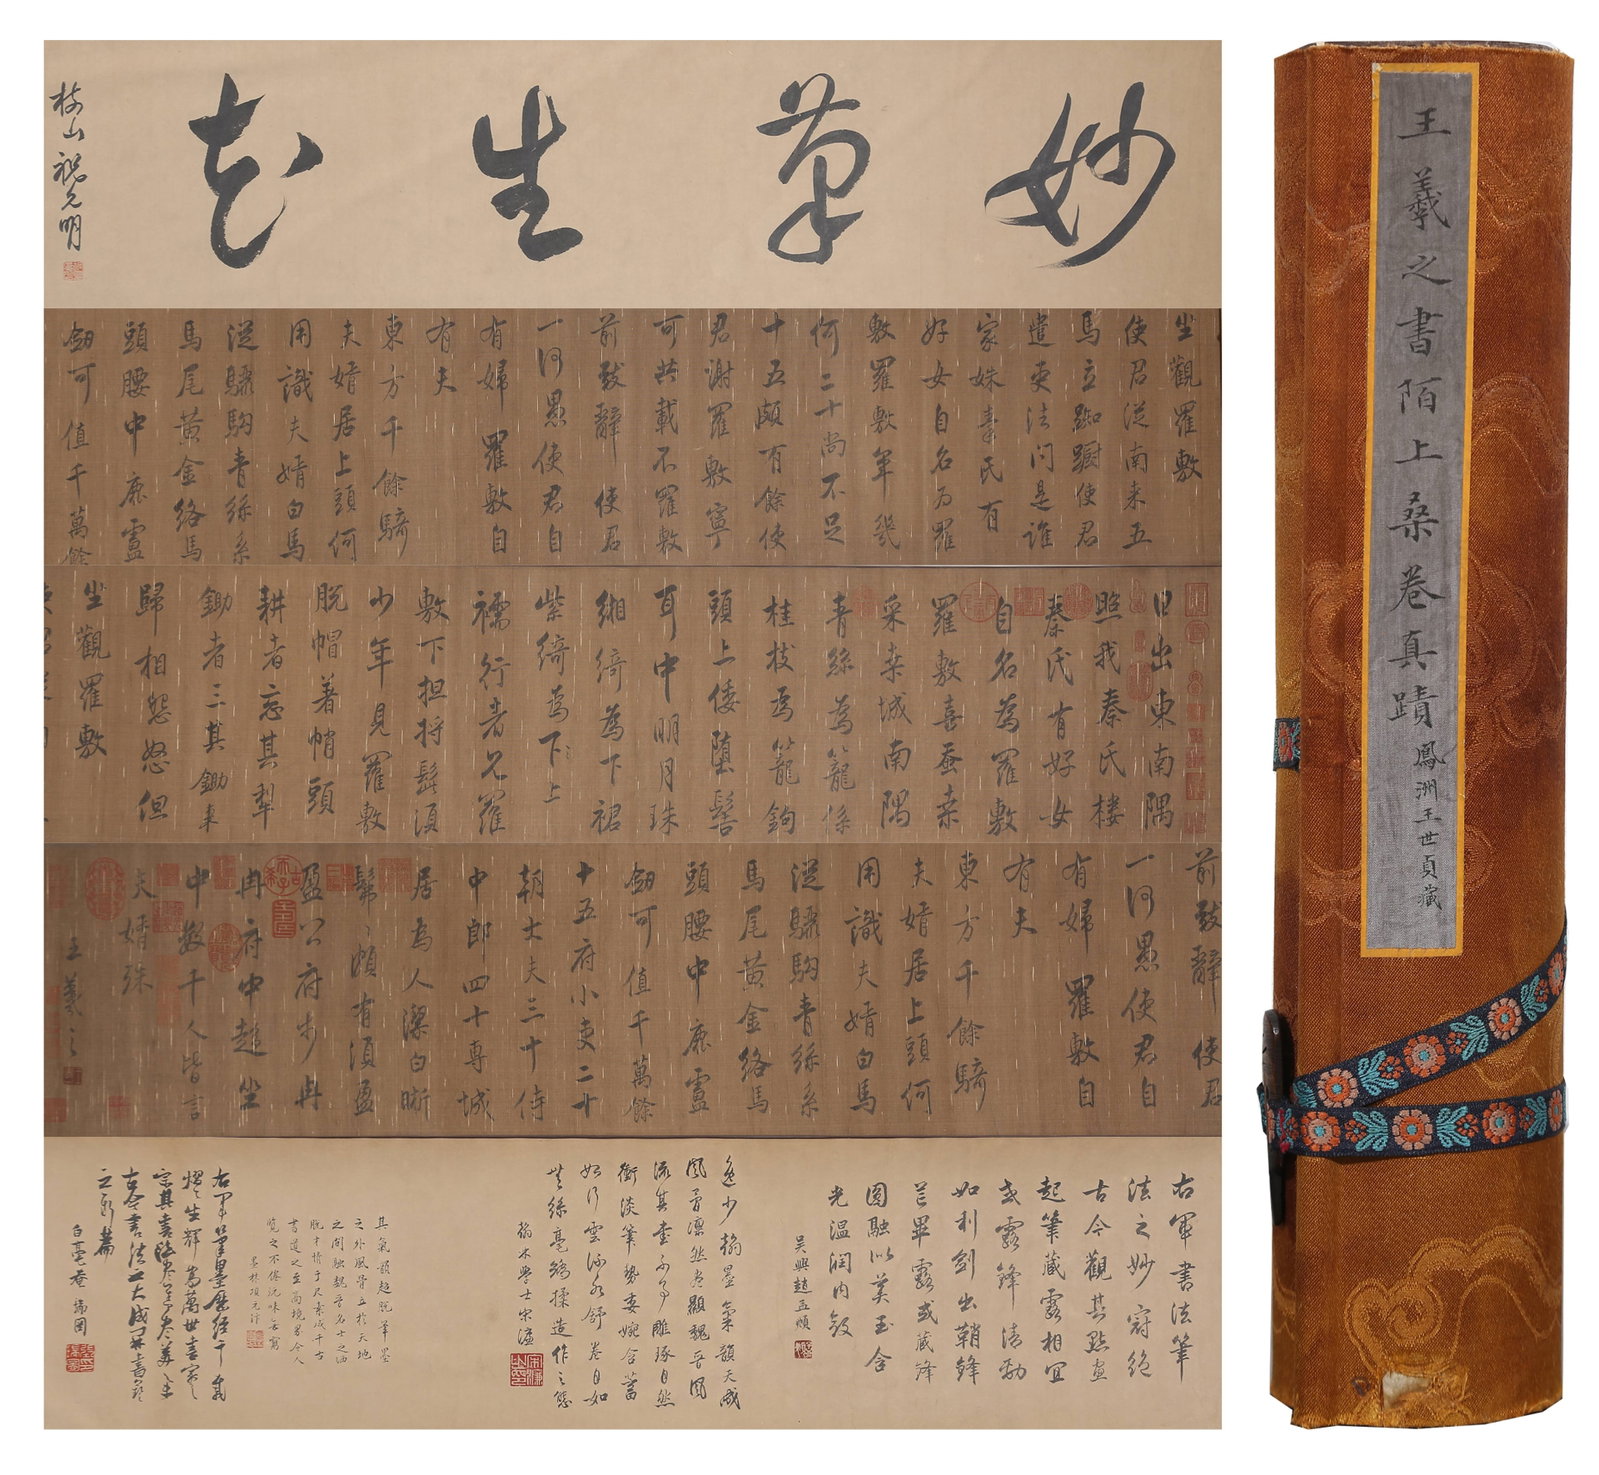 妙筆生花
枝山祝允明
坐觀羅敷
使君從南来五
馬立踟躕使君
遣吏法問是誰
家姝秦氏有
好女自名为羅
敷羅敷年幾
何二十尚不足
十五頗有餘使
君謝羅敷寧
可共載不羅敷
前致辭使君
一何愚使君自
有婦羅敷自
有夫
東方千餘騎
夫婿居上頭何
用識夫婿白馬
從驪駒青絲系
馬尾黄金絡馬
頭腰中鹿盧
劒可值千萬餘
日出東南隅
照我秦氏楼
秦氏有好女
自名為羅敷
羅敷喜蚕桒
采桒城南隅
青絲為籠係
桂枝為籠鉤
頭上倭堕髻
耳中明月珠
緗綺為下裙
紫綺為下上
襦行者見羅
敷下担捋髭須
少年見羅敷
脱帽著帩頭
耕者忘其犁
鋤者三其鋤来
歸相怨怒但
坐觀羅敷
前致辭使君
一何愚使君自
有婦羅敷自
有夫
東方千餘騎
夫婿居上頭何
用識夫婿白馬
從驪駒青絲系
馬尾黄金絡馬
頭腰中鹿盧
劒可值千萬餘
十五府小吏二十
朝士夫三十侍
中郎四十專城
居為人潔白晰
鬑〻頗有須盈
盈公府步冉
冉府中趨坐
中數千人皆言
夫婿殊
王羲之
右軍書法筆
法之妙冠絕
古今觀其點画
起筆藏露相宜
或露鋒清勁
如利剑出鞘鋒
芒畢露或藏鋒
圓融似美玉含
光温润内敛
吴興趙孟頫
逸少翰墨氣韻天成
風骨凛然尽顯魏晋風
流其書不事雕琢自然
衝淡筆势委婉含蓄
如行雲流水舒卷自如
無絲毫矯揉造作之態
翰林學士宋濂
其氣韻超脱筆墨
之外風骨立於天地
之間融魏晋名士之洒
脱才情于尺素成千古
書道之至高境界令人
览之不倦沉味無窮
墨林項元汴
右軍筆墨歷經千載
熠〻生輝為萬世書家之
宗其書法尽善尽美
古今書法之大成開書藝
之新篇
白毫庵瑞图
王羲之書陌上桑卷真蹟
鳳洲王世貞藏